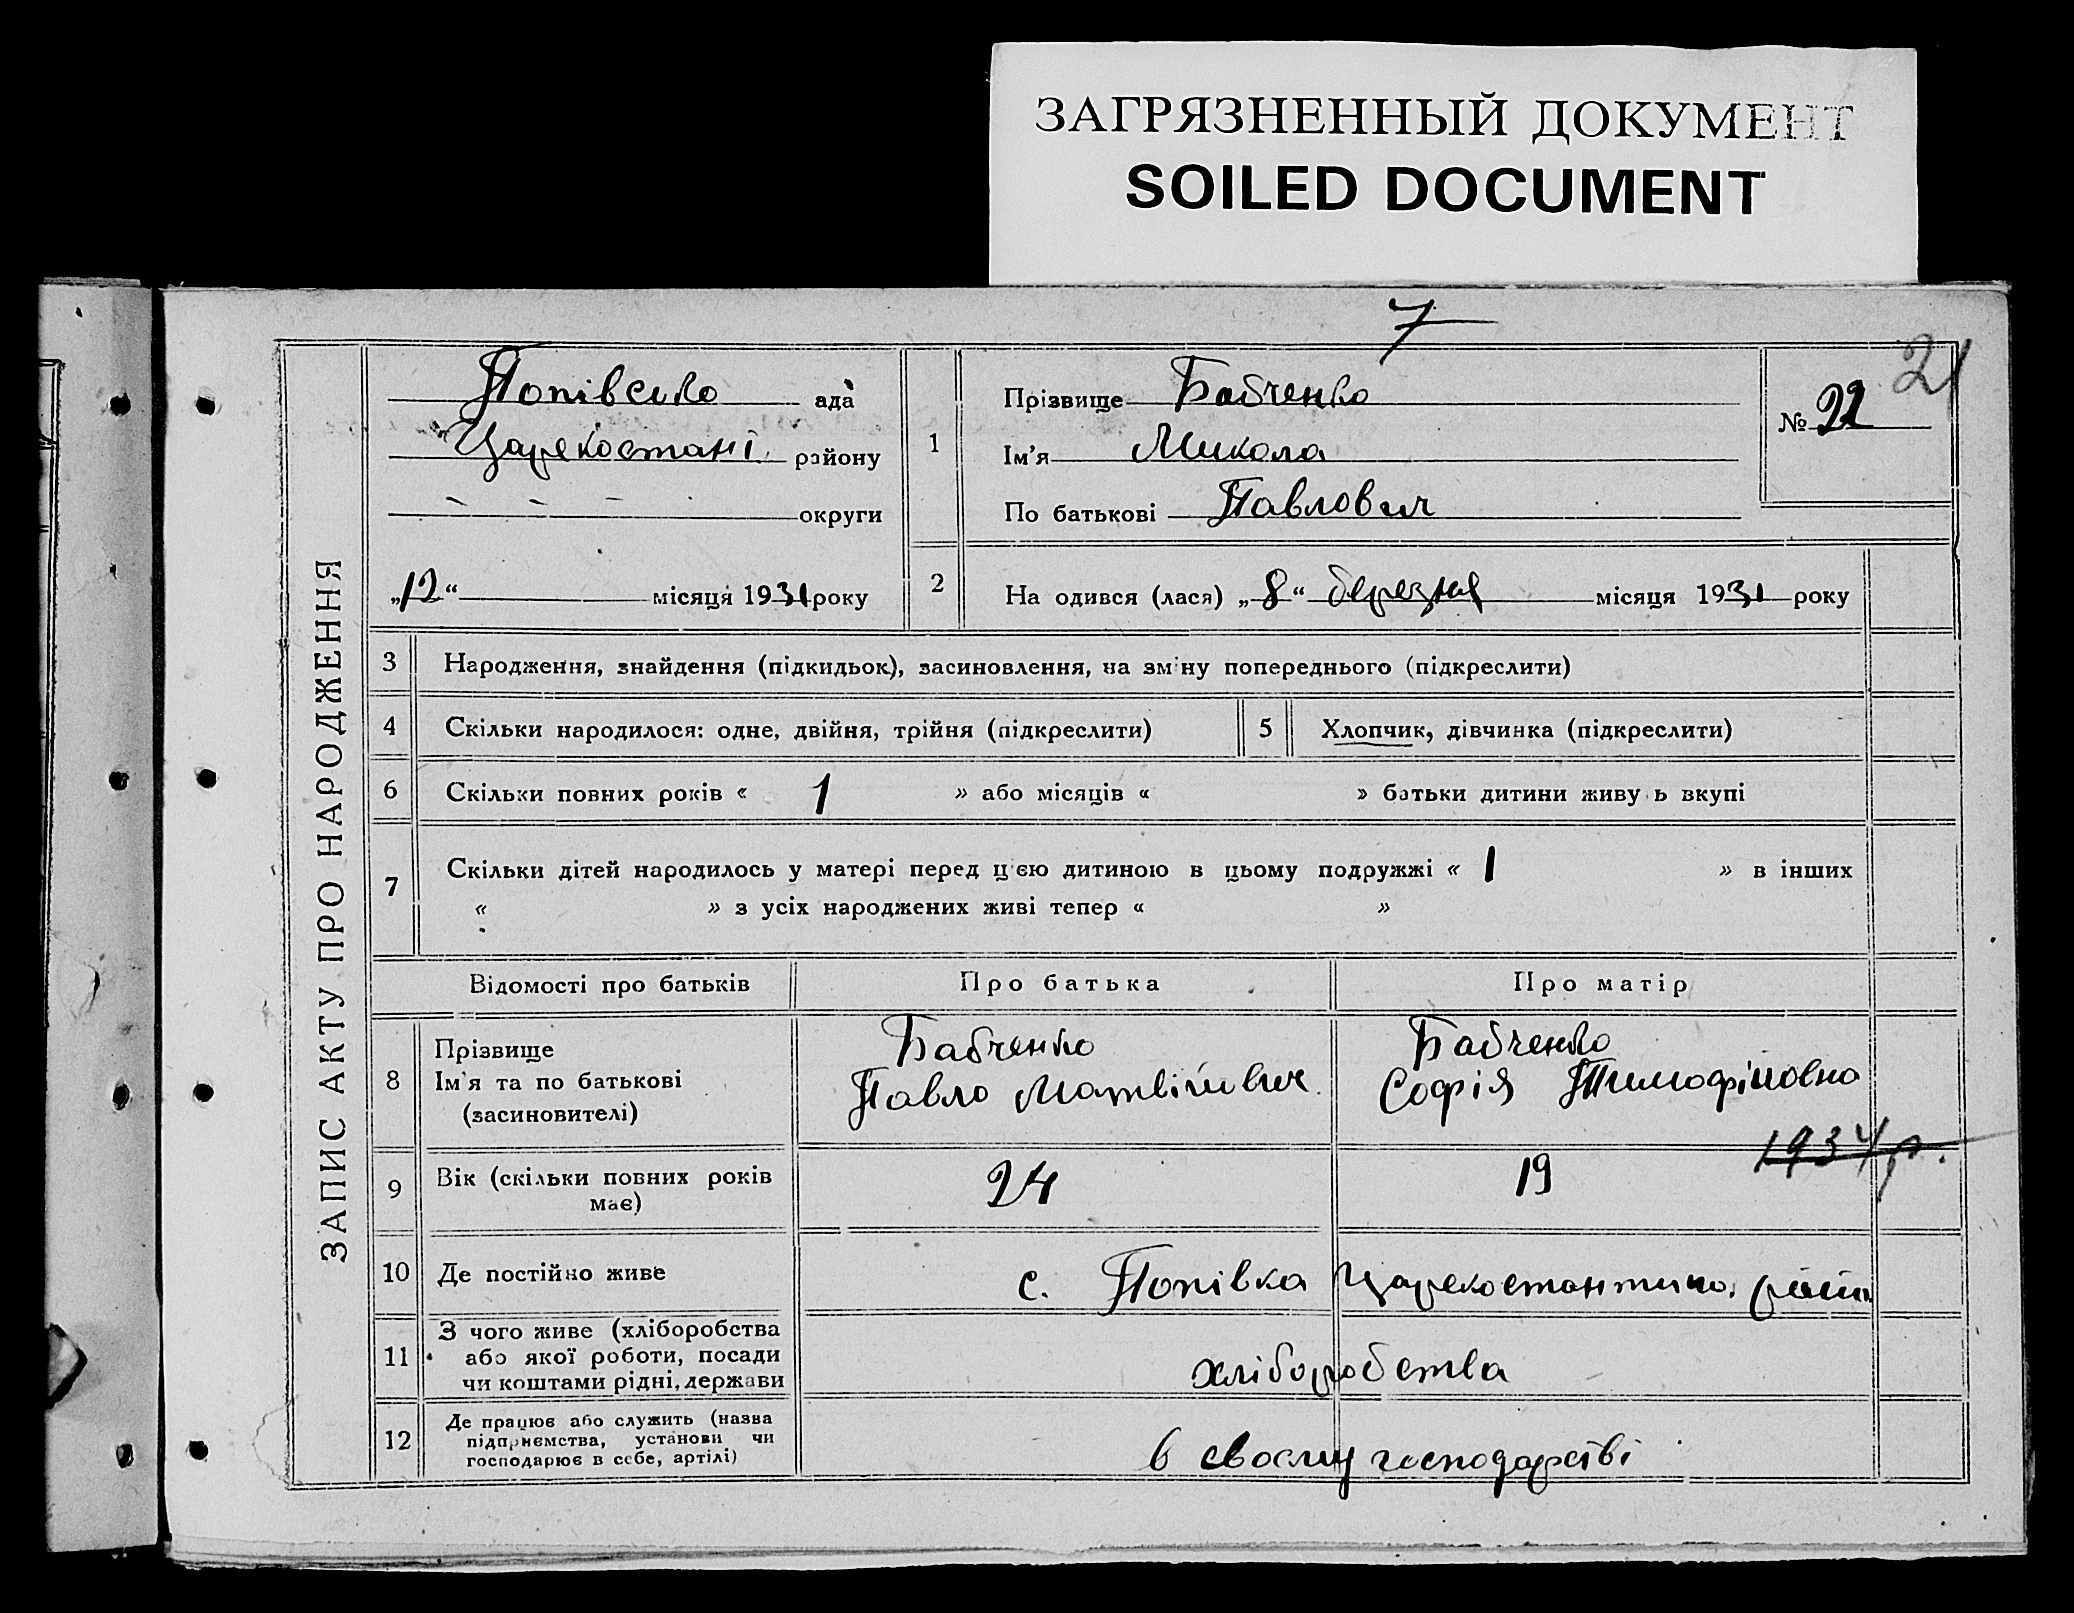 ЗАГРЯЗНЕННЫЙ ДОКУМЕНТ
SOILED DOCUMENT
7
21
ЗАПИС АКТУ ПРО НАРОДЖЕННЯ
Попівсько ада
Царекостані району
округи
„12“ місяця 1931 року
1
Прізвище Бабченко
Ім'я Микола
По батькові Павлович
№ 22
2 На одився (лася) „8“ березня місяця 1931 року
3 Народження, знайдення (підкидьок), засиновлення, на зміну попереднього (підкреслити)
4 Скільки народилося: одне, двійня, трійня (підкреслити) 5 Хлопчик, дівчинка (підкреслити)
6 Скільки повних років « 1 » або місяців « » батьки дитини живу ь вкупі
7 Скільки дітей народилось у матері перед цією дитиною в цьому подружжі « 1 » в інших
« » з усіх народжених живі тепер « »
Відомості про батьків Про батька Про матір
8 Прізвище Бабченко Бабченко
Ім'я та по батькові Павло Матвійович Софія Тимофіивна
(засиновителі)
1934 р.
9 Вік (скільки повних років 24 19
має)
10 Де постійно живе с. Попівка Царекостантино, район
11 З чого живе (хліборобства
або якої роботи, посади хліборобства
чи коштами рідні, держави
12 Де працює або служить (назва
підприємства, установи чи в своєму господарстві
господарює в себе, артілі)